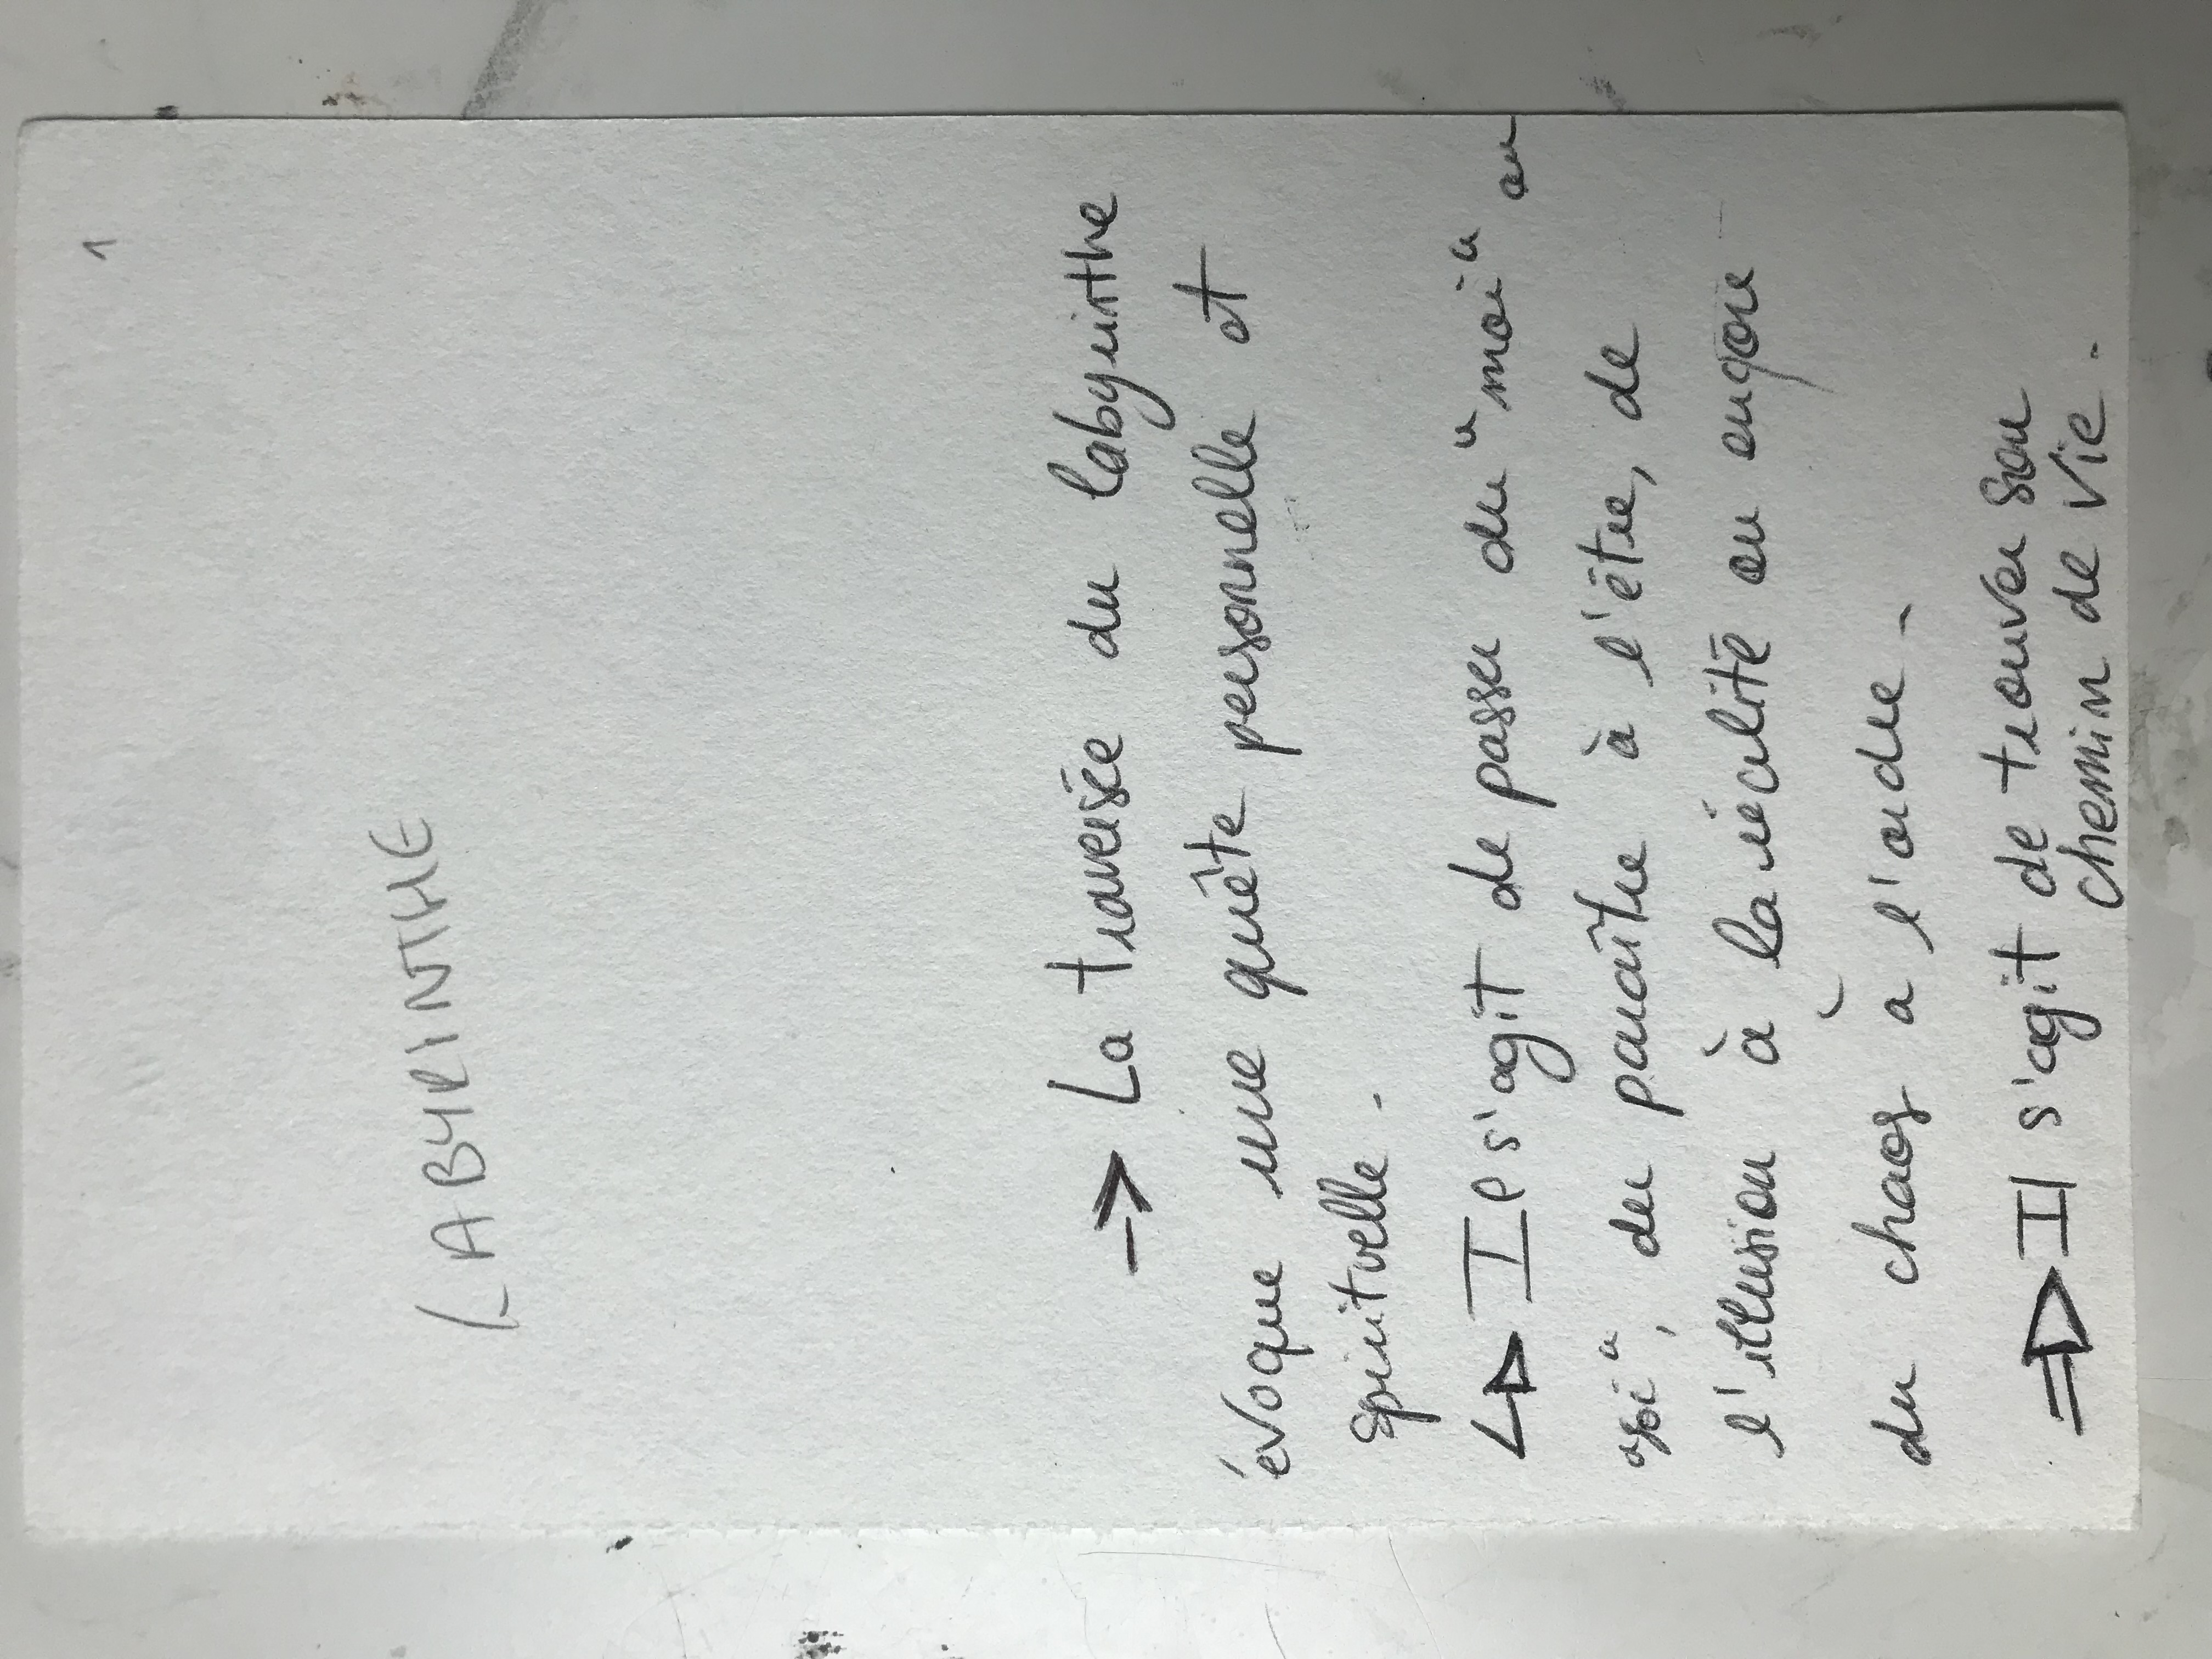 1
LABYRINTHE
-> La traversée du labyrinthe
évoque une quête personnelle et
spirituelle.
↳ Il s'agit de passer du "moi" au
"soi", du paraître à l'être, de
l'illusion à la réalité ou encore
du chaos à l'ordre.
=> Il s'agit de trouver son
chemin de vie.